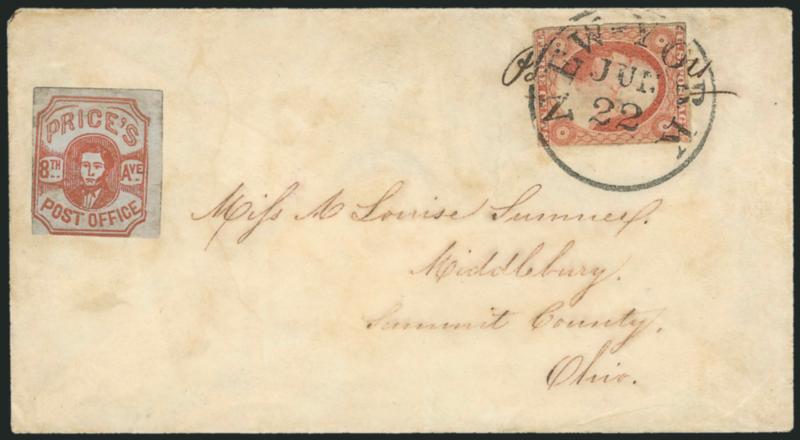 PRICE'S
8TH AVE
POST OFFICE
NEW-YORK
JUL
22
Miss M Louise Sumner.
Middlebury.
Summit County.
Ohio.